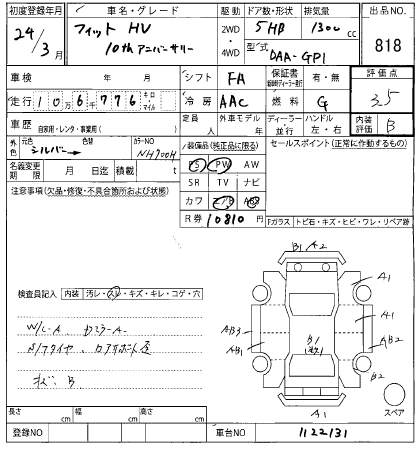 初度登録年月 車名・グレード 駆動 ドア数・形状 排気量 出品NO.
24/3月 フィット HV 10thアニバーサリー 2WD・4WD 5HB 1300cc 818
型式 DAA-GP1
車検 年 月 シフト FA 保証書 有・無 評価点
走行 10万6千776 キロ・マイル 冷房 AAC 燃料 G 3.5
車歴 自家用・レンタ・事業用( ) 定員 人 外車モデル 年 ディーラー・並行 ハンドル 左・右 内装評価 B
外色 元色 シルバー 色替 カラーNO NH700H
装備品(純正品に限る) セールスポイント(正常に作動するもの)
名義変更期限 月 日迄 積載 t
PS PW AW
SR TV ナビ
カワ エアB ABS
R券 10810
注意事項(欠品・修復・不具合箇所および状態)
Fガラス トビ石・キズ・ヒビ・ワレ・リペア跡
検査員記入 内装 汚レ・スレ・キズ・キレ・コゲ・穴
W/L-A
N/タイヤ
キズ B
B1 A2
A1
AB3
AB1
B1
A1
AB2
B2
A1
スペア
長さ cm 幅 cm 高さ cm
登録NO 車台NO 1122131